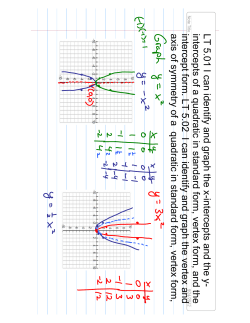 LT 5.01 I can identify and graph the x-intercepts and the y-
intercepts of a quadratic in standard form, vertex form, and the
intercept form. LT 5.02 I can identify and graph the vertex and
axis of symmetry of a quadratic in standard form, vertex form,
Graph y = x²
y = -x²
(0,0)
x y
0 0
1 1
-1 1
2 4
-2 4
x y
0 0
1 -1
-1 -1
2 -4
-2 -4
y = 3x²
x y
0 0
1 3
-1 3
2 12
-2 12
y = ½x²